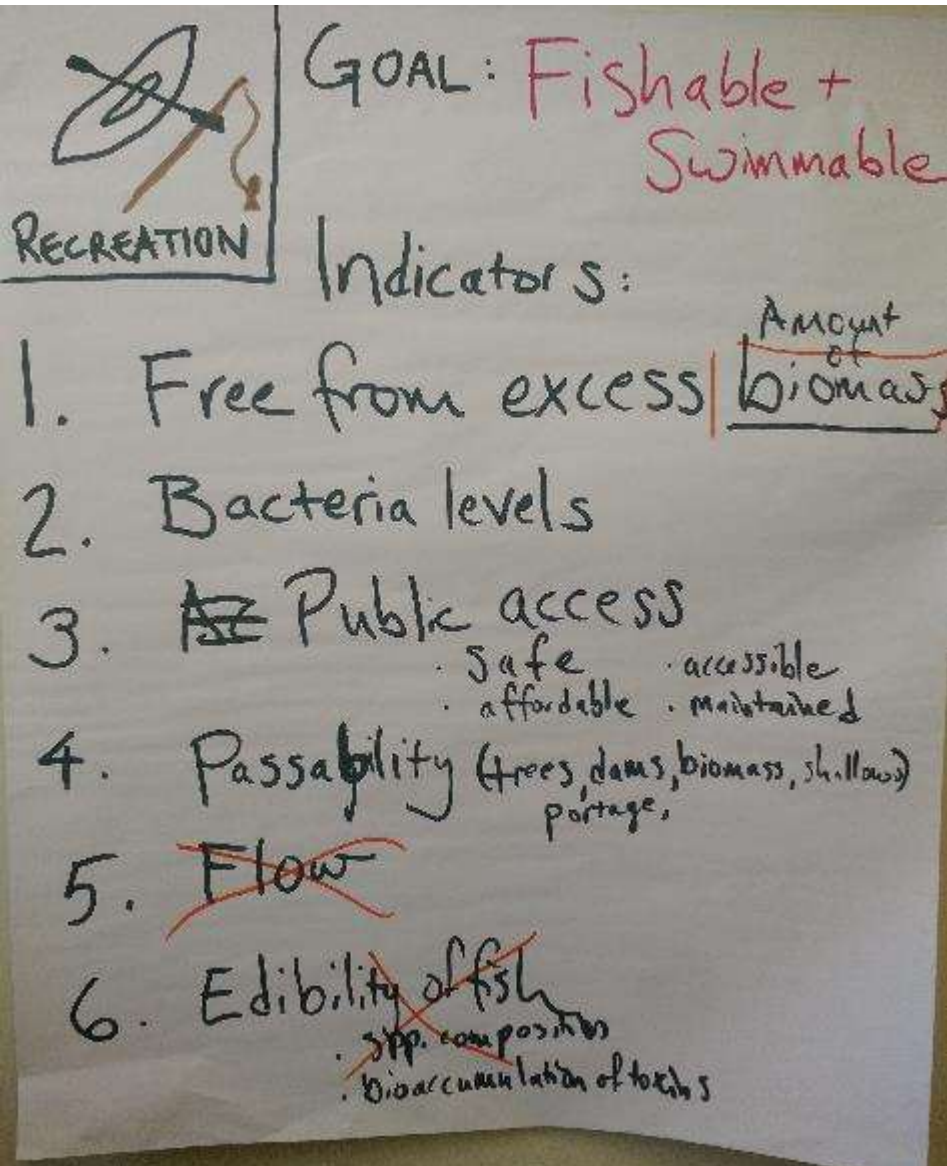 RECREATION
GOAL: Fishable +
Swimmable
Indicators:
1. Free from excess Amount of biomass
2. Bacteria levels
3. Public access
· safe · accessible
· affordable · maintained
4. Passability (trees, dams, biomass, shallows)
portage,
5. Flow
6. Edibility of fish
· spp. composition
· bioaccumulation of toxins